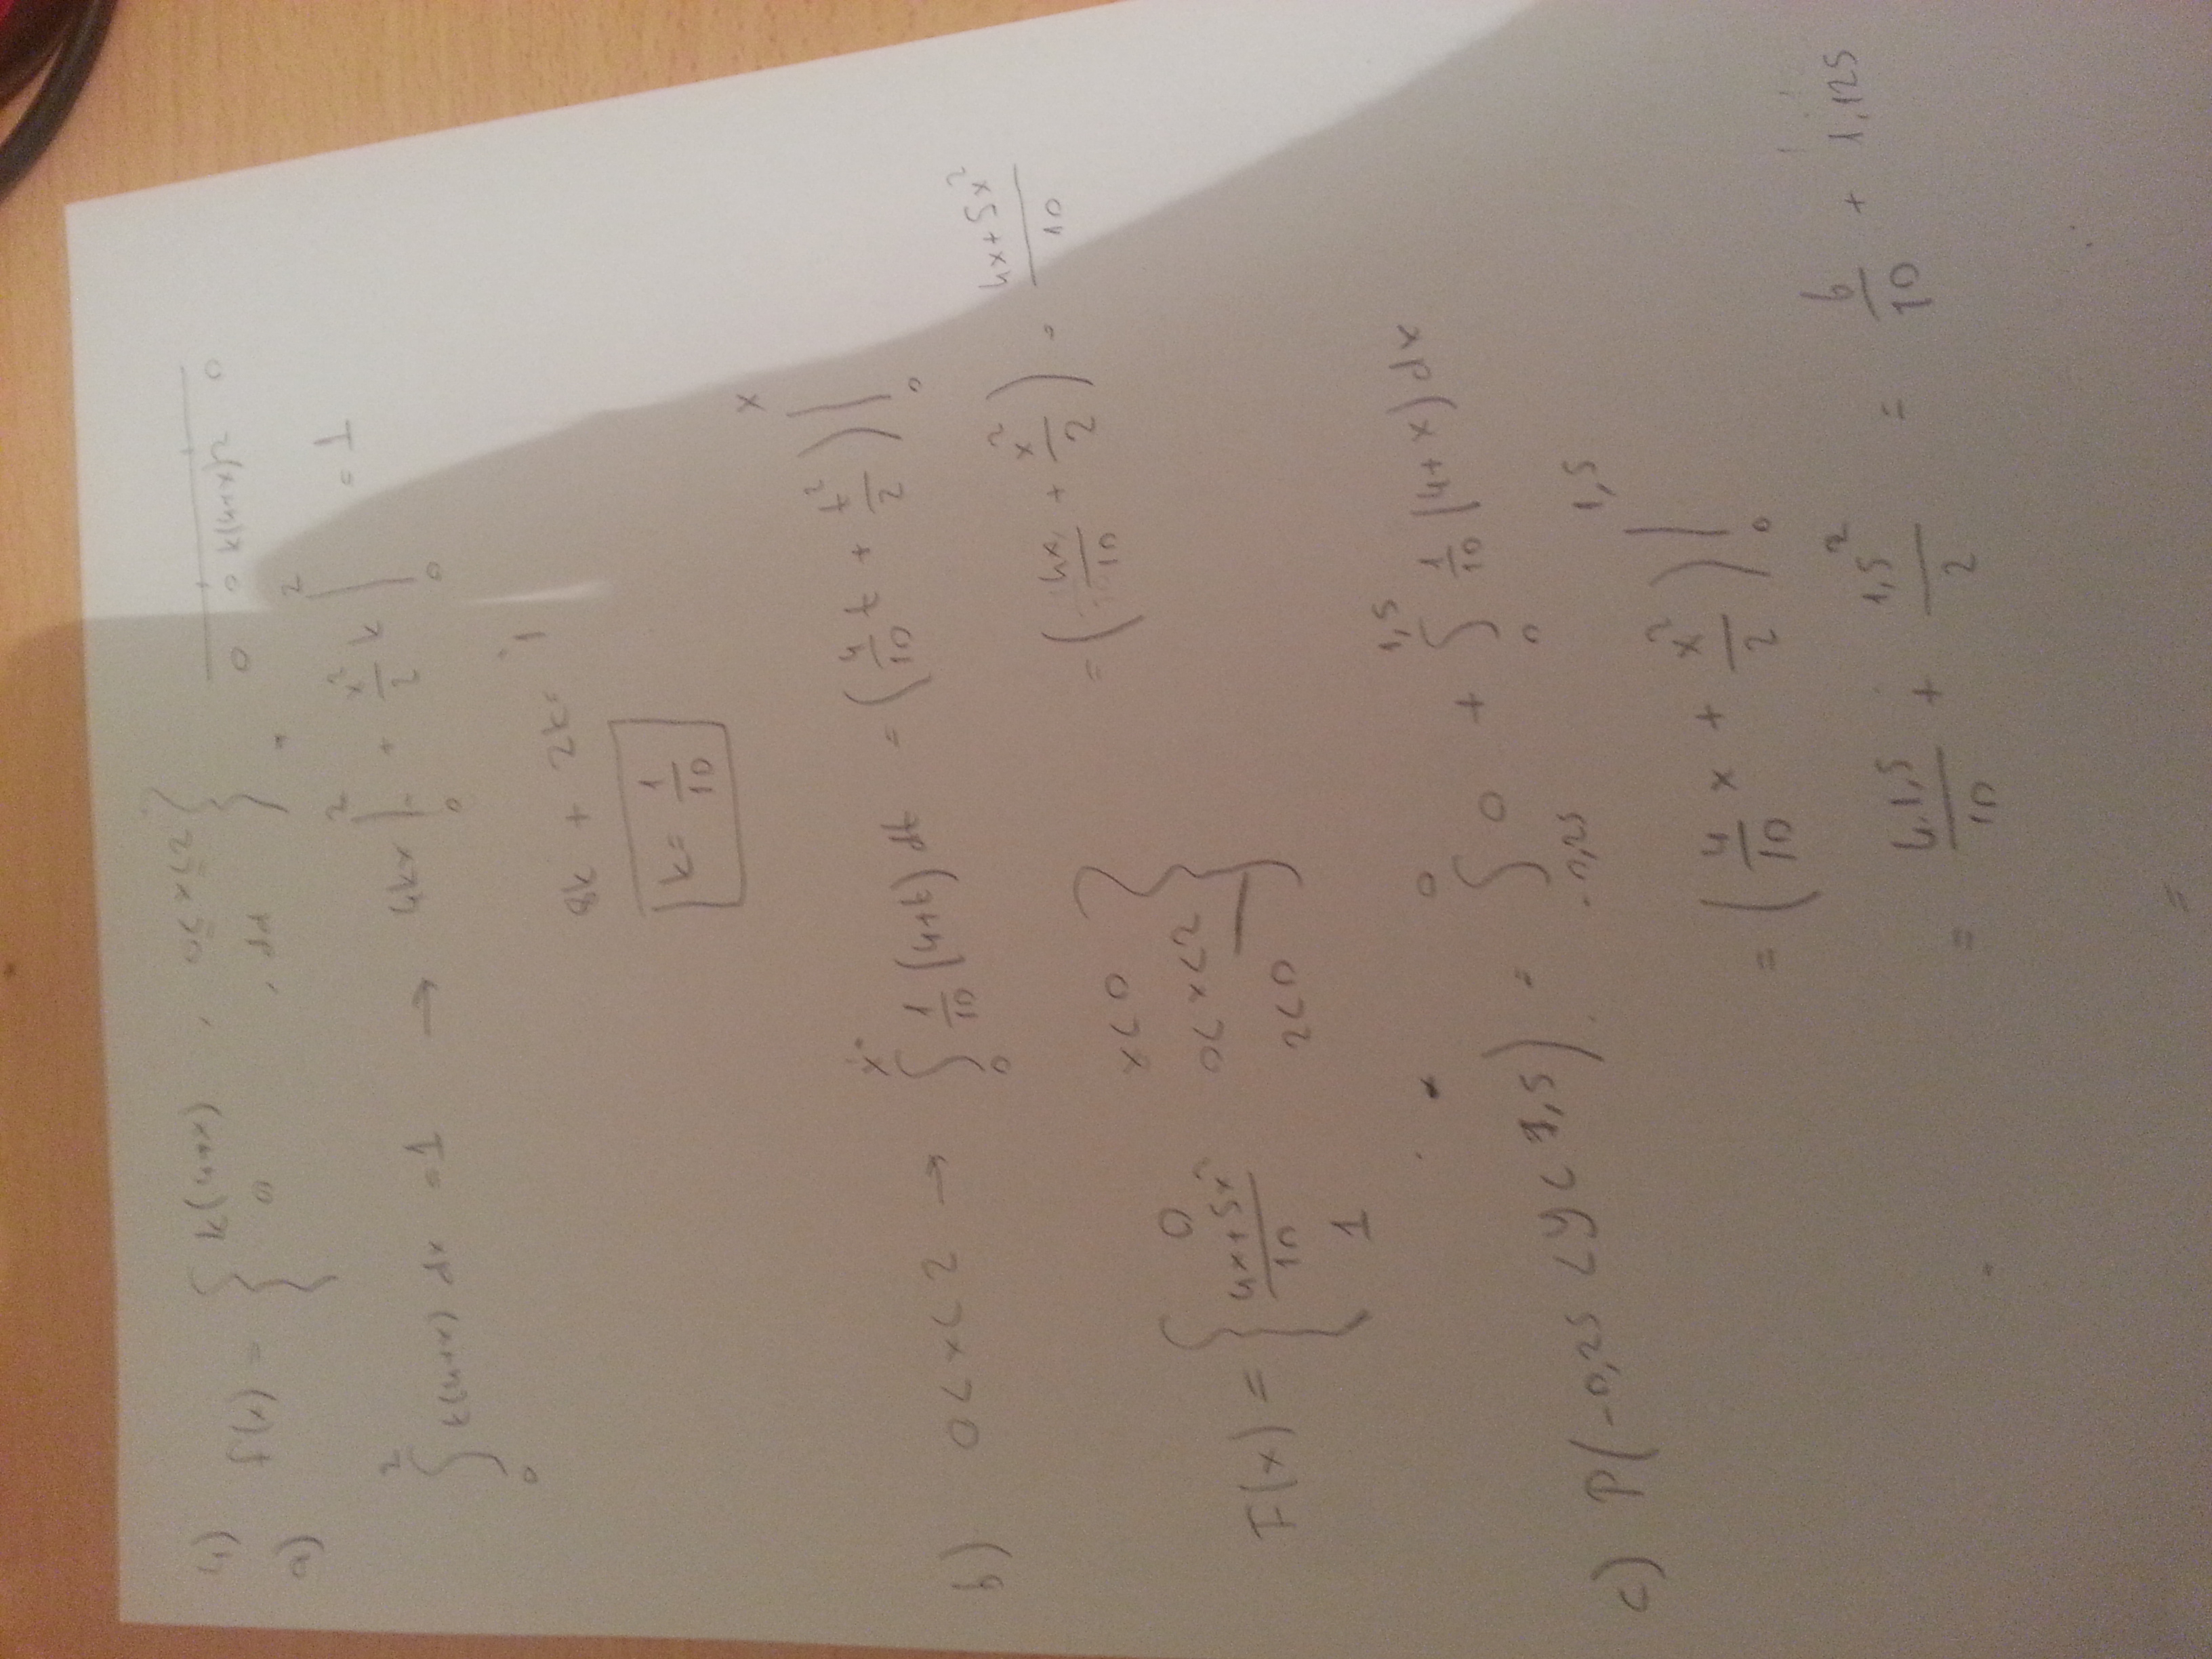 4)
a) f(x) = { k(4+x) , 0≤x≤2
0 , dd }
0 0 k(4+x) 2 0
∫₀² k(4+x) dx = 1 → 4kx |₀² + x²/2 k |₀² = 1
8k + 2k = 1
k = 1/10
b) 0<x<2 → ∫₀ˣ 1/10 (4+t) dt = (4/10 t + t²/2) |₀ˣ
= (4x/10 + x²/2) = 4x+5x²/10
F(x) = { 0 x<0
4x+5x²/10 0<x<2
1 2<0 }
c) P(-0,25 <y< 1,5) = ∫₋₀,₂₅⁰ 0 + ∫₀^1,5 1/10 (4+x) dx
= (4/10 x + x²/2) |₀^1,5
= 4.1,5/10 + 1,5²/2 = 6/10 + 1,125
=